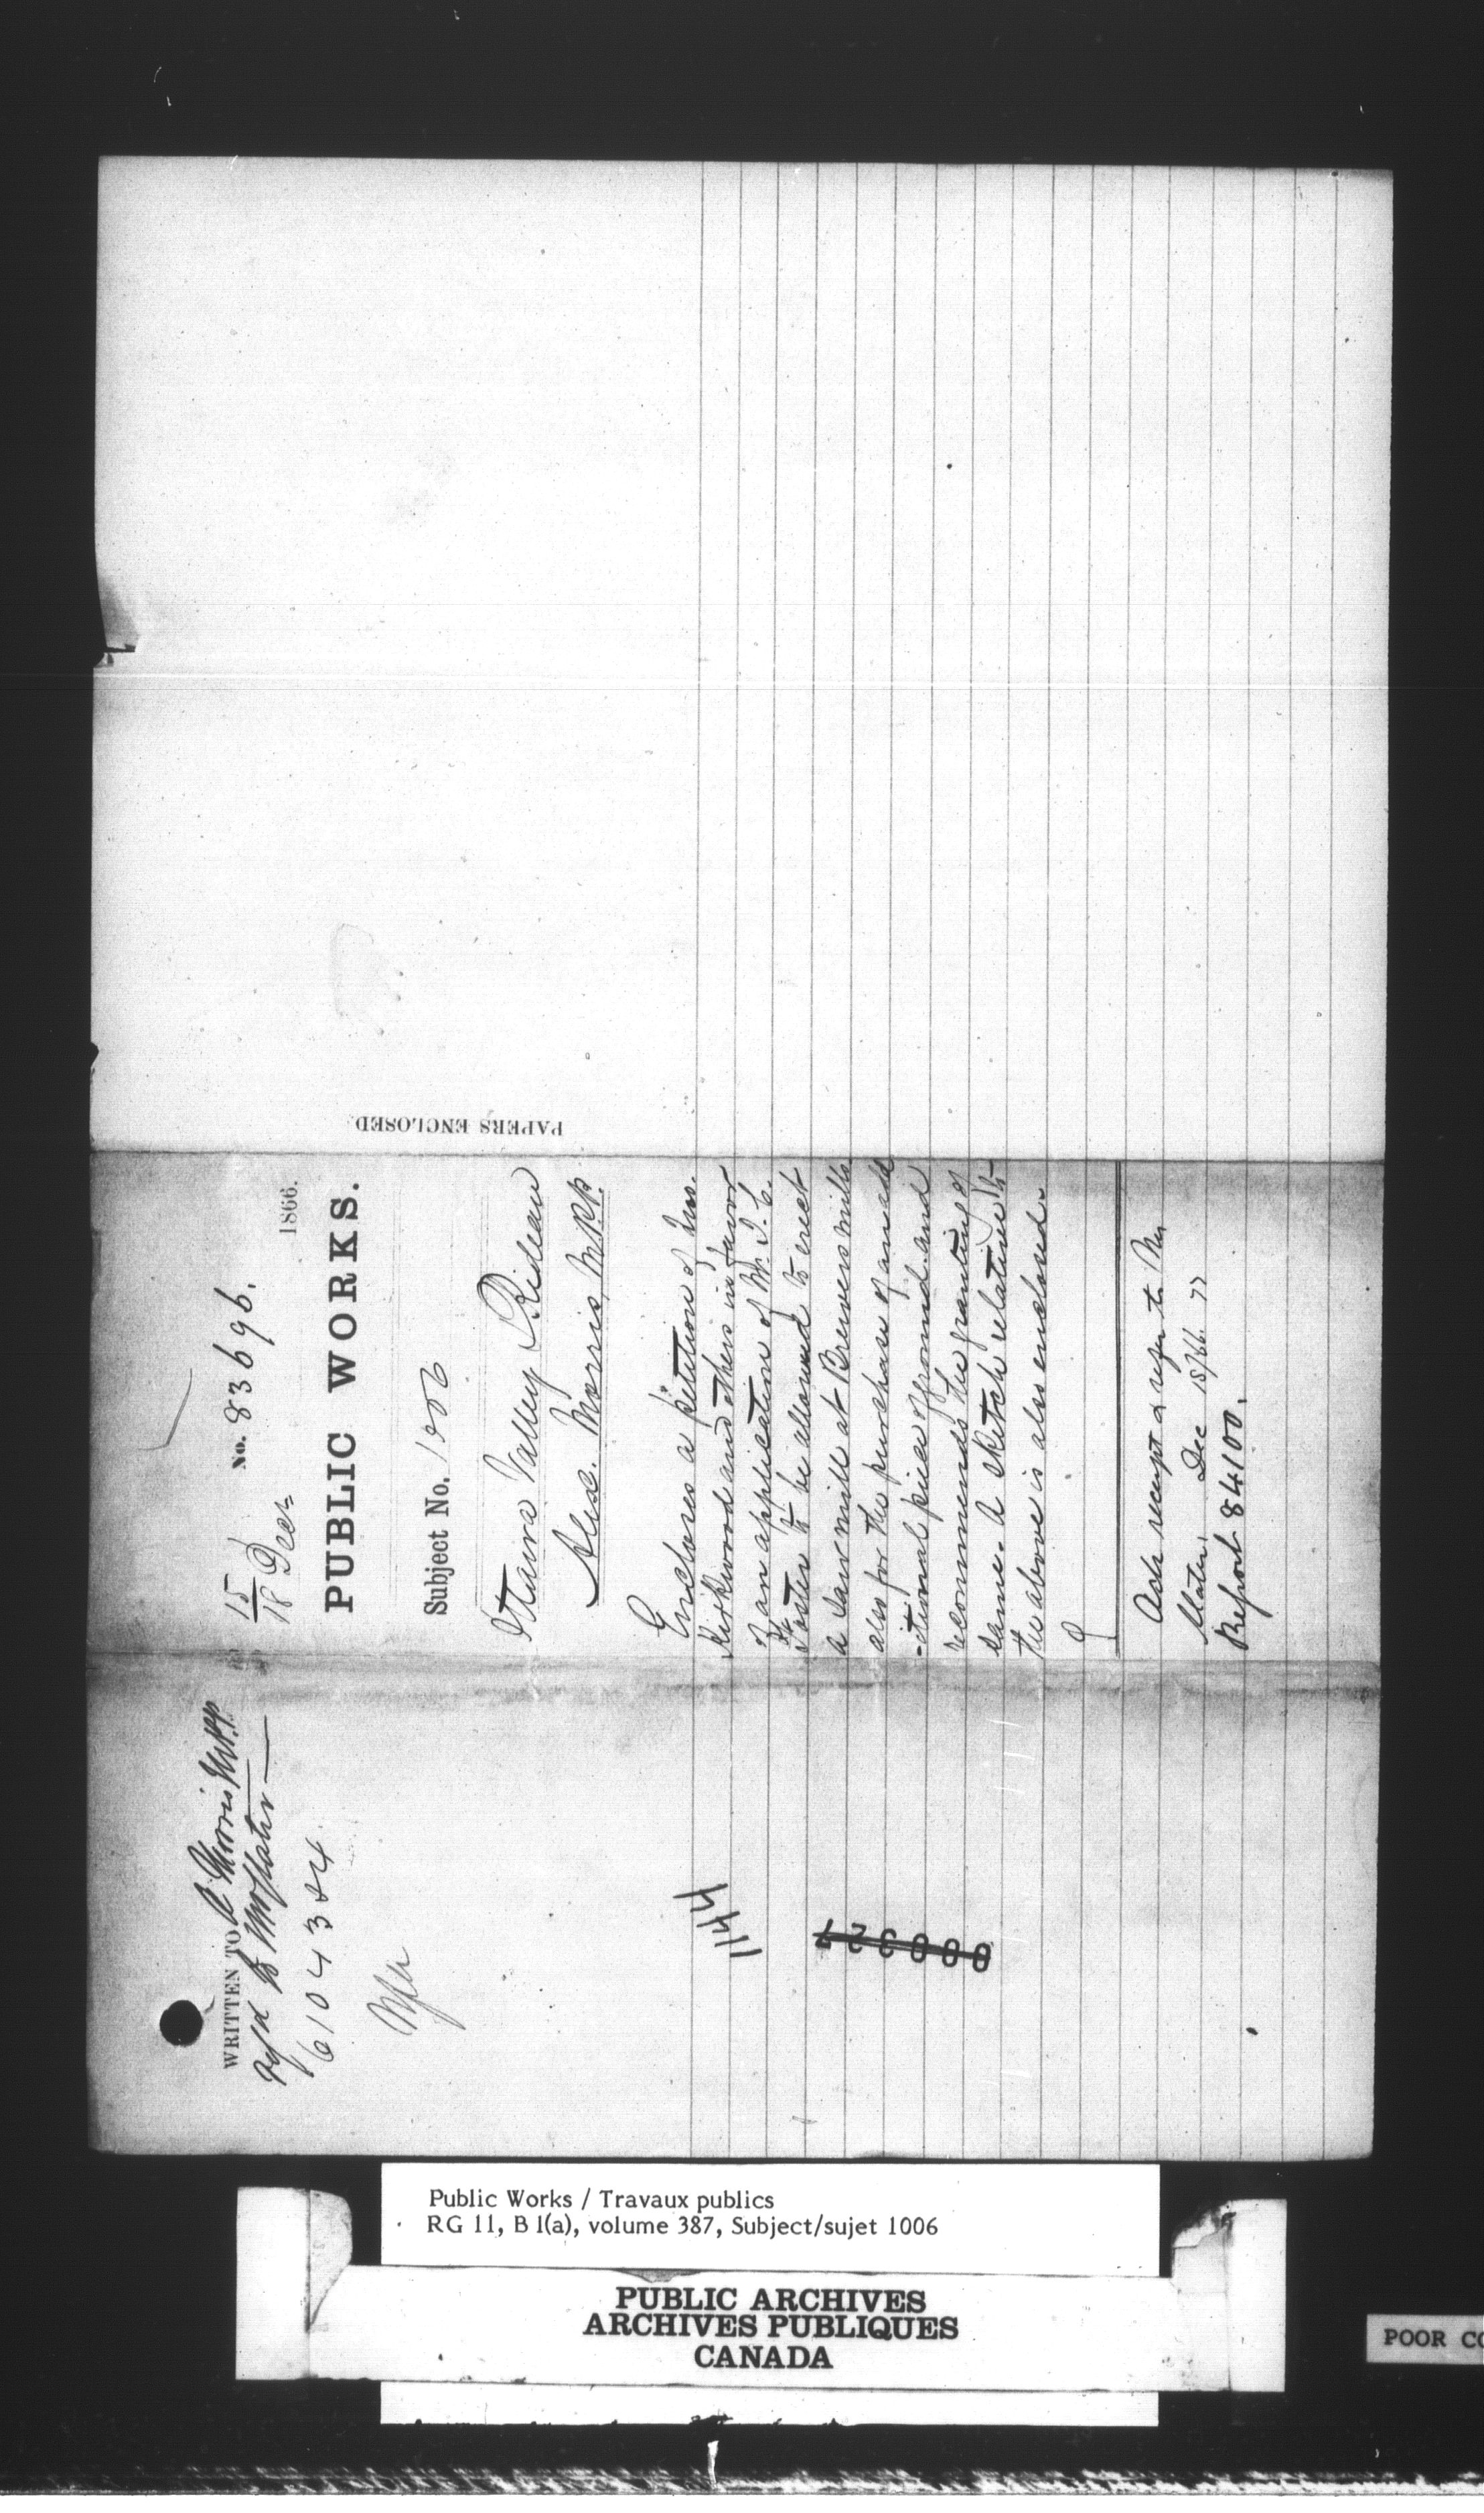 WRITTEN TO A Morris M.P.P.
610434
144
000327
No. 83696.
15
18 Decr
1866.
PUBLIC WORKS.
Subject No. 1006
Ottawa Valley Rideau
Alex. Morris, M.P.P.
Encloses a petition of Jas.
Kirkwood and others in favor
of an application of Mr. J. C.
Foster to be allowed to erect
a saw mill at Brewers mills
also for the purchase of an add
-itional piece of ground and
recommends the granting of
same. A sketch relative to
the above is also enclosed.
Ack receipt & refer to Mr
Slater, Dec 15/66
Report 84100.
PAPERS ENCLOSED
Public Works / Travaux publics
RG 11, B 1(a), volume 387, Subject/sujet 1006
PUBLIC ARCHIVES
ARCHIVES PUBLIQUES
CANADA
POOR CO